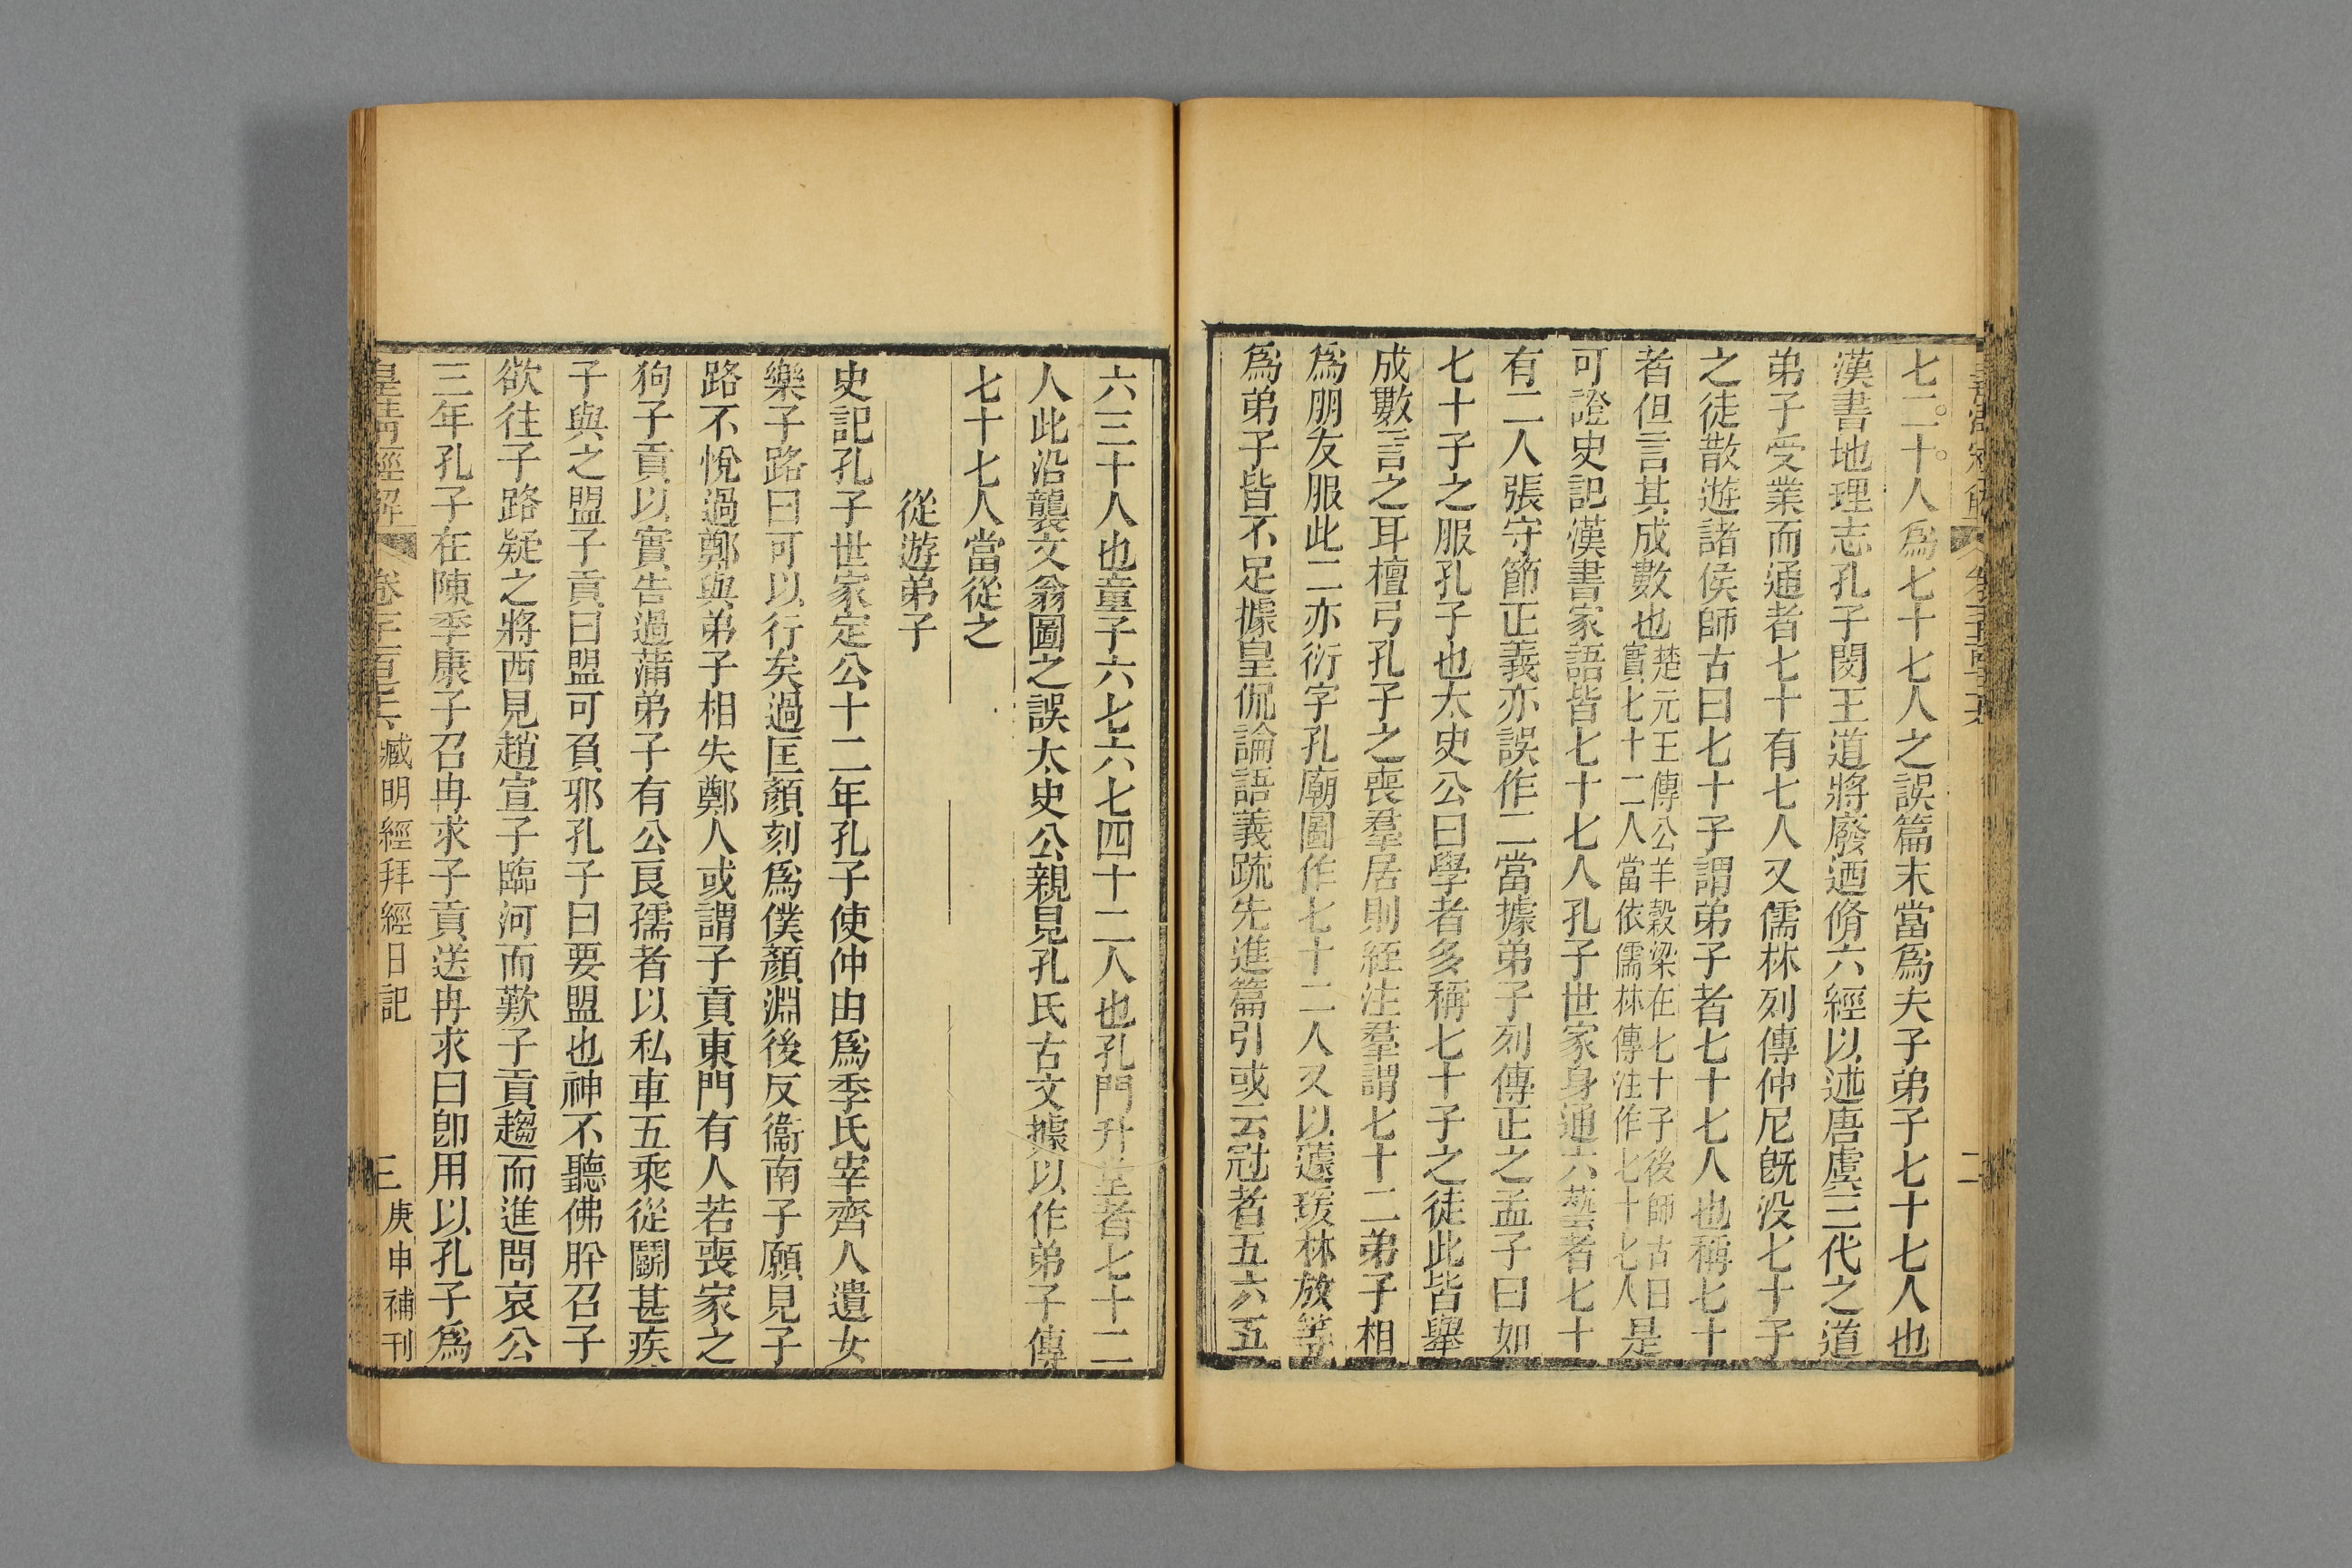 七二十人爲七十七人之誤篇末當爲夫子弟子七十七人也
漢書地理志孔子閔王道將廢迺脩六經以述唐虞三代之道
弟子受業而通者七十有七人又儒林列傳仲尼旣沒七十子
之徒散遊諸侯師古曰七十子謂弟子者七十七人也稱七十
者但言其成數也楚元王傳公羊穀梁在七十子後師古曰實七十二人當依儒林傳注作七十七人是
可證史記漢書家語皆七十七人孔子世家身通六藝者七十
有二人張守節正義亦誤作二當據弟子列傳正之孟子曰如
七十子之服孔子也太史公曰學者多稱七十子之徒此皆舉
成數言之耳檀弓孔子之喪羣居則絰注羣謂七十二弟子相
爲朋友服此二亦衍字孔廟圖作七十二人又以蘧瑗林放等
爲弟子皆不足據皇侃論語義疏先進篇引或云冠者五六五
二
六三十人也童子六七六七四十二人也孔門升堂者七十二
人此沿襲文翁圖之誤太史公親見孔氏古文據以作弟子傳
七十七人當從之
從遊弟子
史記孔子世家定公十二年孔子使仲由爲季氏宰齊人遺女
樂子路曰可以行矣過匡顏刻爲僕顏淵後反衞南子願見子
路不悅過鄭與弟子相失鄭人或謂子貢東門有人若喪家之
狗子貢以實告過蒲弟子有公良孺者以私車五乘從鬭甚疾
子與之盟子貢曰盟可負邪孔子曰要盟也神不聽佛肸召子
欲往子路疑之將西見趙宣子臨河而歎子貢趨而進問哀公
三年孔子在陳季康子召冉求子貢送冉求曰卽用以孔子爲
皇淸經解 卷 臧明經拜經日記 三 庚申補刊